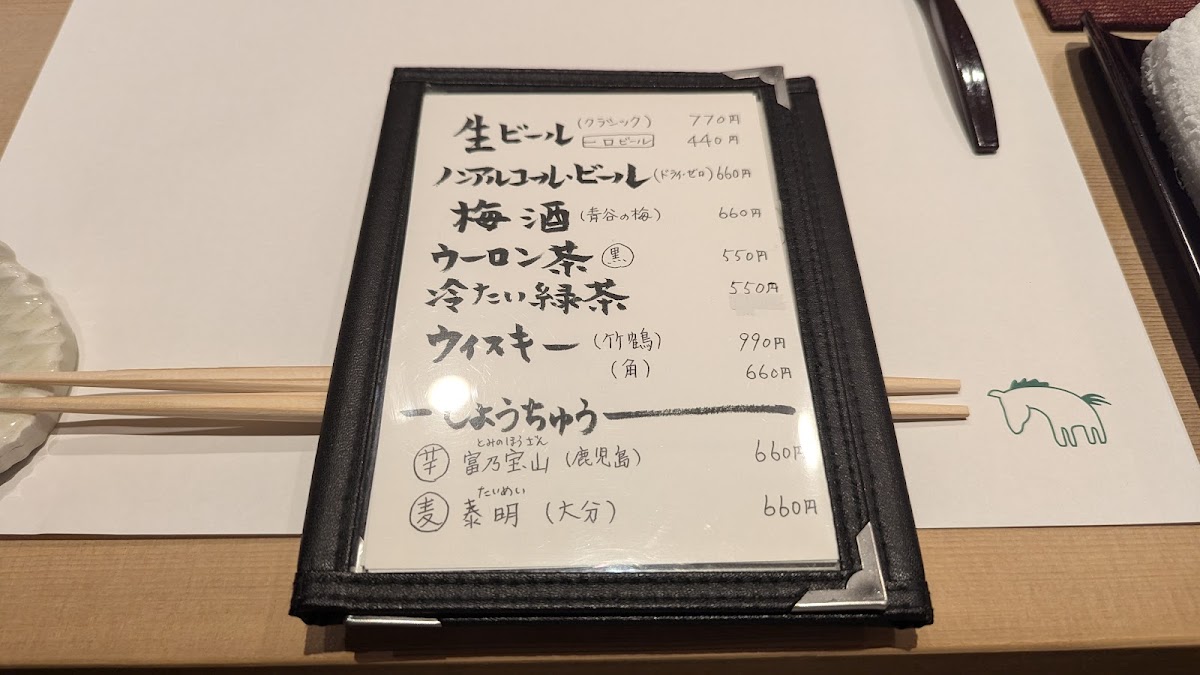 生ビール (クラシック) 770円
一口ビール 440円
ノンアルコール・ビール (ドライ・ゼロ) 660円
梅酒 (青谷の梅) 660円
ウーロン茶 黒 550円
冷たい緑茶 550円
ウィスキー (竹鶴) 990円
(角) 660円
しょうちゅう
とみのほうざん
芋 富乃宝山 (鹿児島) 660円
たいめい
麦 泰明 (大分) 660円